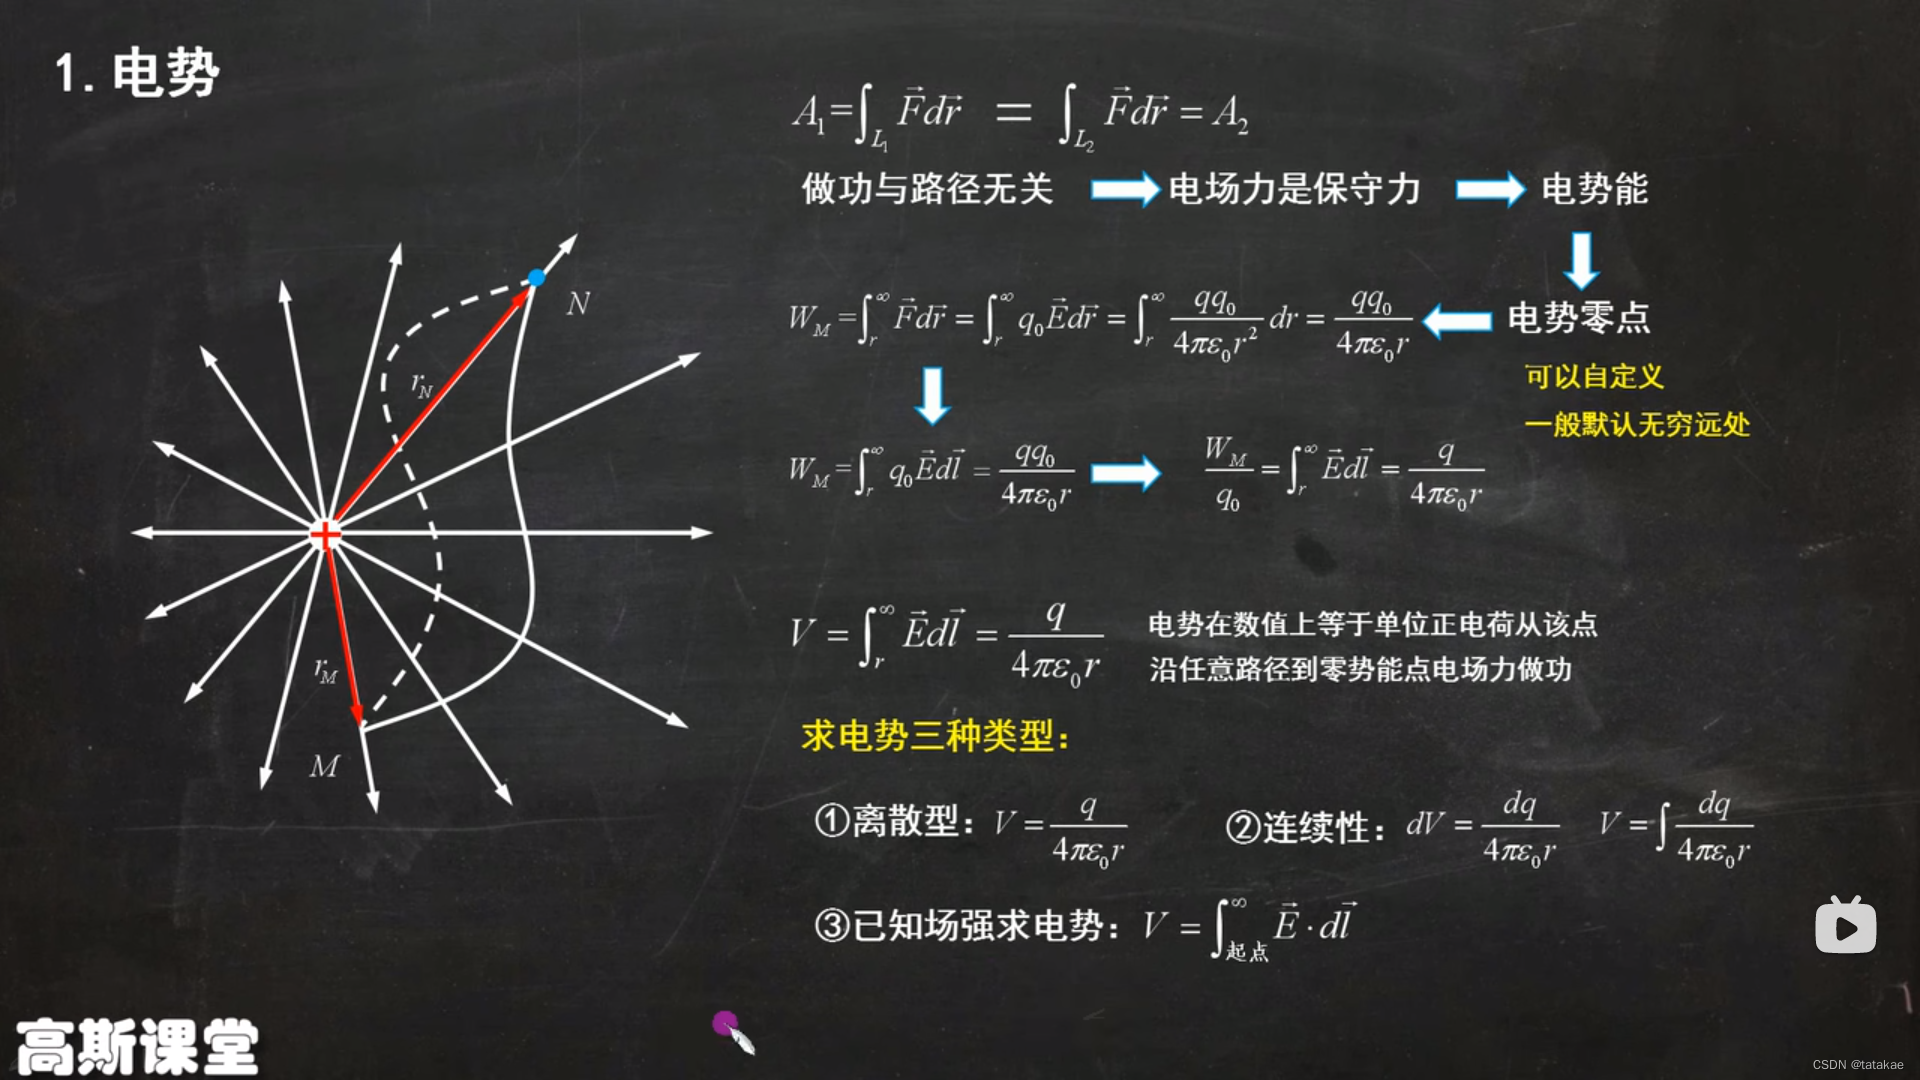 1.电势
A₁=∫_{L₁} F⃗dr⃗ = ∫_{L₂} F⃗dr⃗ = A₂
做功与路径无关 电场力是保守力 电势能
W_M=∫_r^∞ F⃗dr⃗ = ∫_r^∞ q₀E⃗dr⃗ = ∫_r^∞ qq₀/4πε₀r² dr = qq₀/4πε₀r 电势零点
可以自定义
一般默认无穷远处
W_M=∫_r^∞ q₀E⃗dl⃗ = qq₀/4πε₀r W_M/q₀ = ∫_r^∞ E⃗dl⃗ = q/4πε₀r
V = ∫_r^∞ E⃗dl⃗ = q/4πε₀r
电势在数值上等于单位正电荷从该点
沿任意路径到零势能点电场力做功
求电势三种类型：
①离散型：V = q/4πε₀r ②连续性：dV = dq/4πε₀r V = ∫ dq/4πε₀r
③已知场强求电势：V = ∫_{起点}^∞ E⃗·dl⃗
N
r_N
r_M
M
高斯课堂
CSDN @tatakae